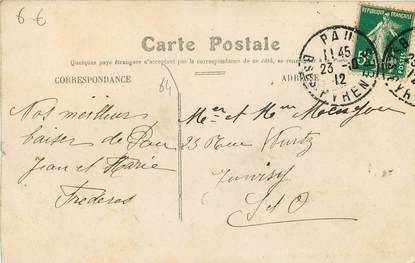 6 €
Carte Postale
Quelques pays étrangers n'acceptent pas la correspondance de ce côté
CORRESPONDANCE
ADRESSE
64
Nos meilleurs
baiser de Pau
Jean et Marie
Mr et Mme
23 Rue Wurtz
Juvisy
S et O
PAU
11 45
23
12
PYRENEES
REPUBLIQUE FRANÇAISE
5c
POSTES